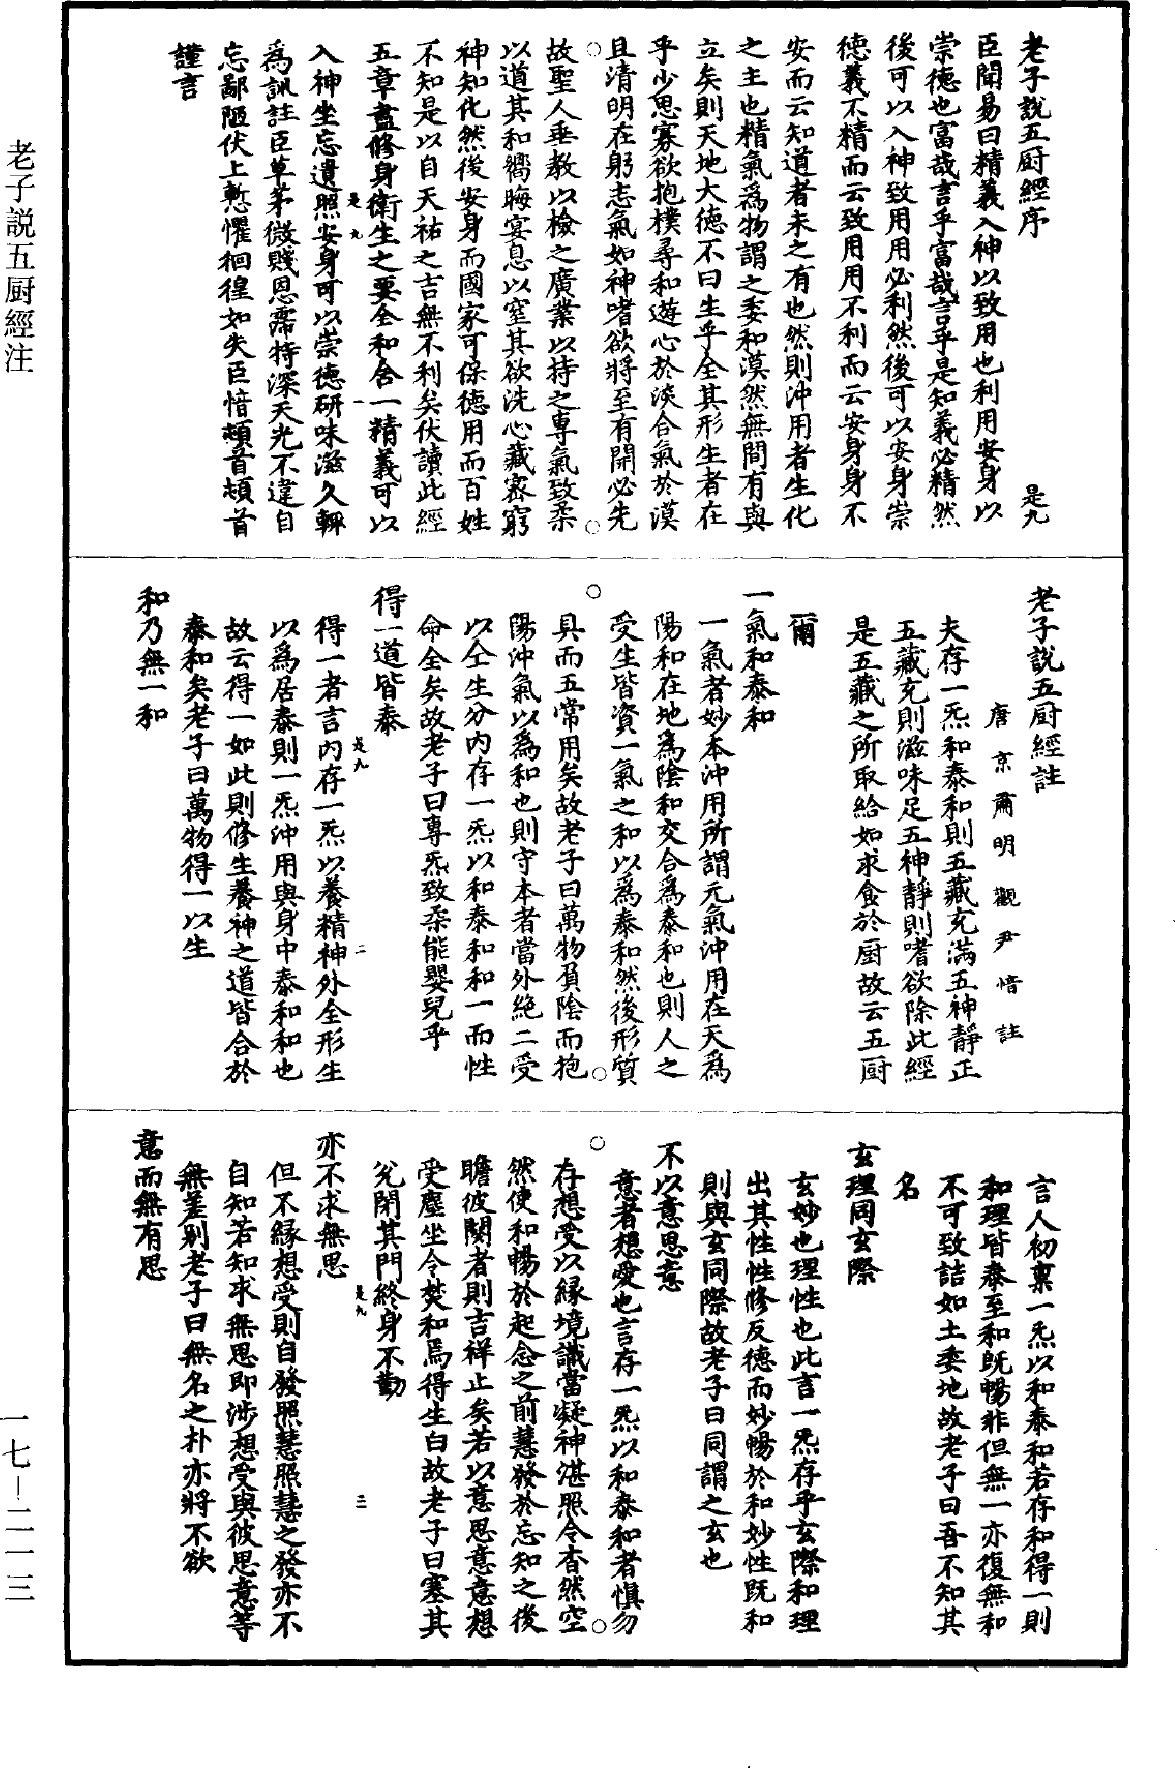 老子說五厨經序　是九
臣聞易曰精義入神以致用也利用安身以
崇德也富哉言乎富哉言乎是知義必精然
後可以入神致用用必利然後可以安身崇
德義不精而云致用用不利而云安身身不
安而云知道者未之有也然則沖用者生化
之主也精氣爲物謂之委和漠然無間有與
立矣則天地大德不曰生乎全其形生者在
乎少思寡欲抱樸尋和遊心於淡合氣於漠
且清明在躬志氣如神嗜欲將至有開必先
故聖人垂教以檢之廣業以持之專氣致柔
以道其和嚮晦宴息以窒其欲洗心藏密窮
神知化然後安身而國家可保德用而百姓
不知是以自天祐之吉無不利矣伏讀此經
五章盡修身衛生之要全和含一精義可以
入神坐忘遺照安身可以崇德研味滋久輒
爲訓註臣草茅微賤恩霈特深天光不違自
忘鄙陋伏上慙懼徊徨如失臣愔頓首頓首
謹言
老子說五厨經註
唐京肅明觀尹愔註
夫存一炁和泰和則五藏充滿五神靜正
五藏充則滋味足五神靜則嗜欲除此經
是五藏之所取給如求食於厨故云五厨
爾
一氣和泰和
一氣者妙本沖用所謂元氣沖用在天爲
陽和在地爲陰和交合爲泰和也則人之
受生皆資一氣之和以爲泰和然後形質
具而五常用矣故老子曰萬物負陰而抱
陽沖氣以爲和也則守本者當外絶二受
以全生分內存一炁以和泰和和一而性
命全矣故老子曰專炁致柔能嬰兒乎
得一道皆泰
得一者言內存一炁以養精神外全形生
以爲居泰則一炁沖用與身中泰和和也
故云得一如此則修生養神之道皆合於
泰和矣老子曰萬物得一以生
和乃無一和
言人初稟一炁以和泰和若存和得一則
和理皆泰至和旣暢非但無一亦復無和
不可致詰如土委地故老子曰吾不知其
名
玄理同玄際
玄妙也理性也此言一炁存乎玄際和理
出其性性修反德而妙暢於和妙性旣和
則與玄同際故老子曰同謂之玄也
不以意思意
意者想愛也言存一炁以和泰和者愼勿
存想受以緣境識當凝神湛照令杳然空
然使和暢於起念之前慧發於忘知之後
瞻彼闋者則吉祥止矣若以意思意意想
受塵坐令焚和焉得生白故老子曰塞其
兌閉其門終身不勤
亦不求無思
但不緣想受則自發照慧照慧之發亦不
自知若知求無思即涉想受與彼思意等
無差別老子曰無名之朴亦將不欲
意而無有思
是九　一
是九　二
是九　三
老子說五厨經注
一七—二一三